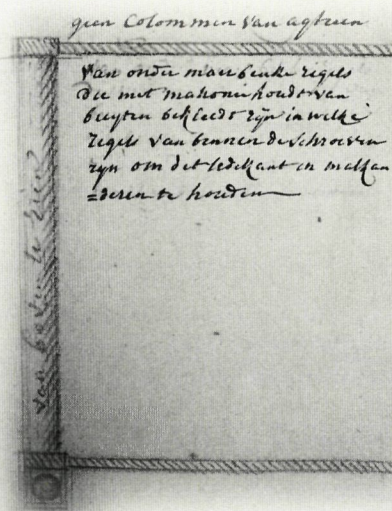 geen Colommen van agteren
Van onder moer beuke regels
die met mahonie houdt van
buyten bekleedt zyn in welke
regels van binnen de schroeven
zyn om det ledekant in malkan
=deren te houden
van boven te zien